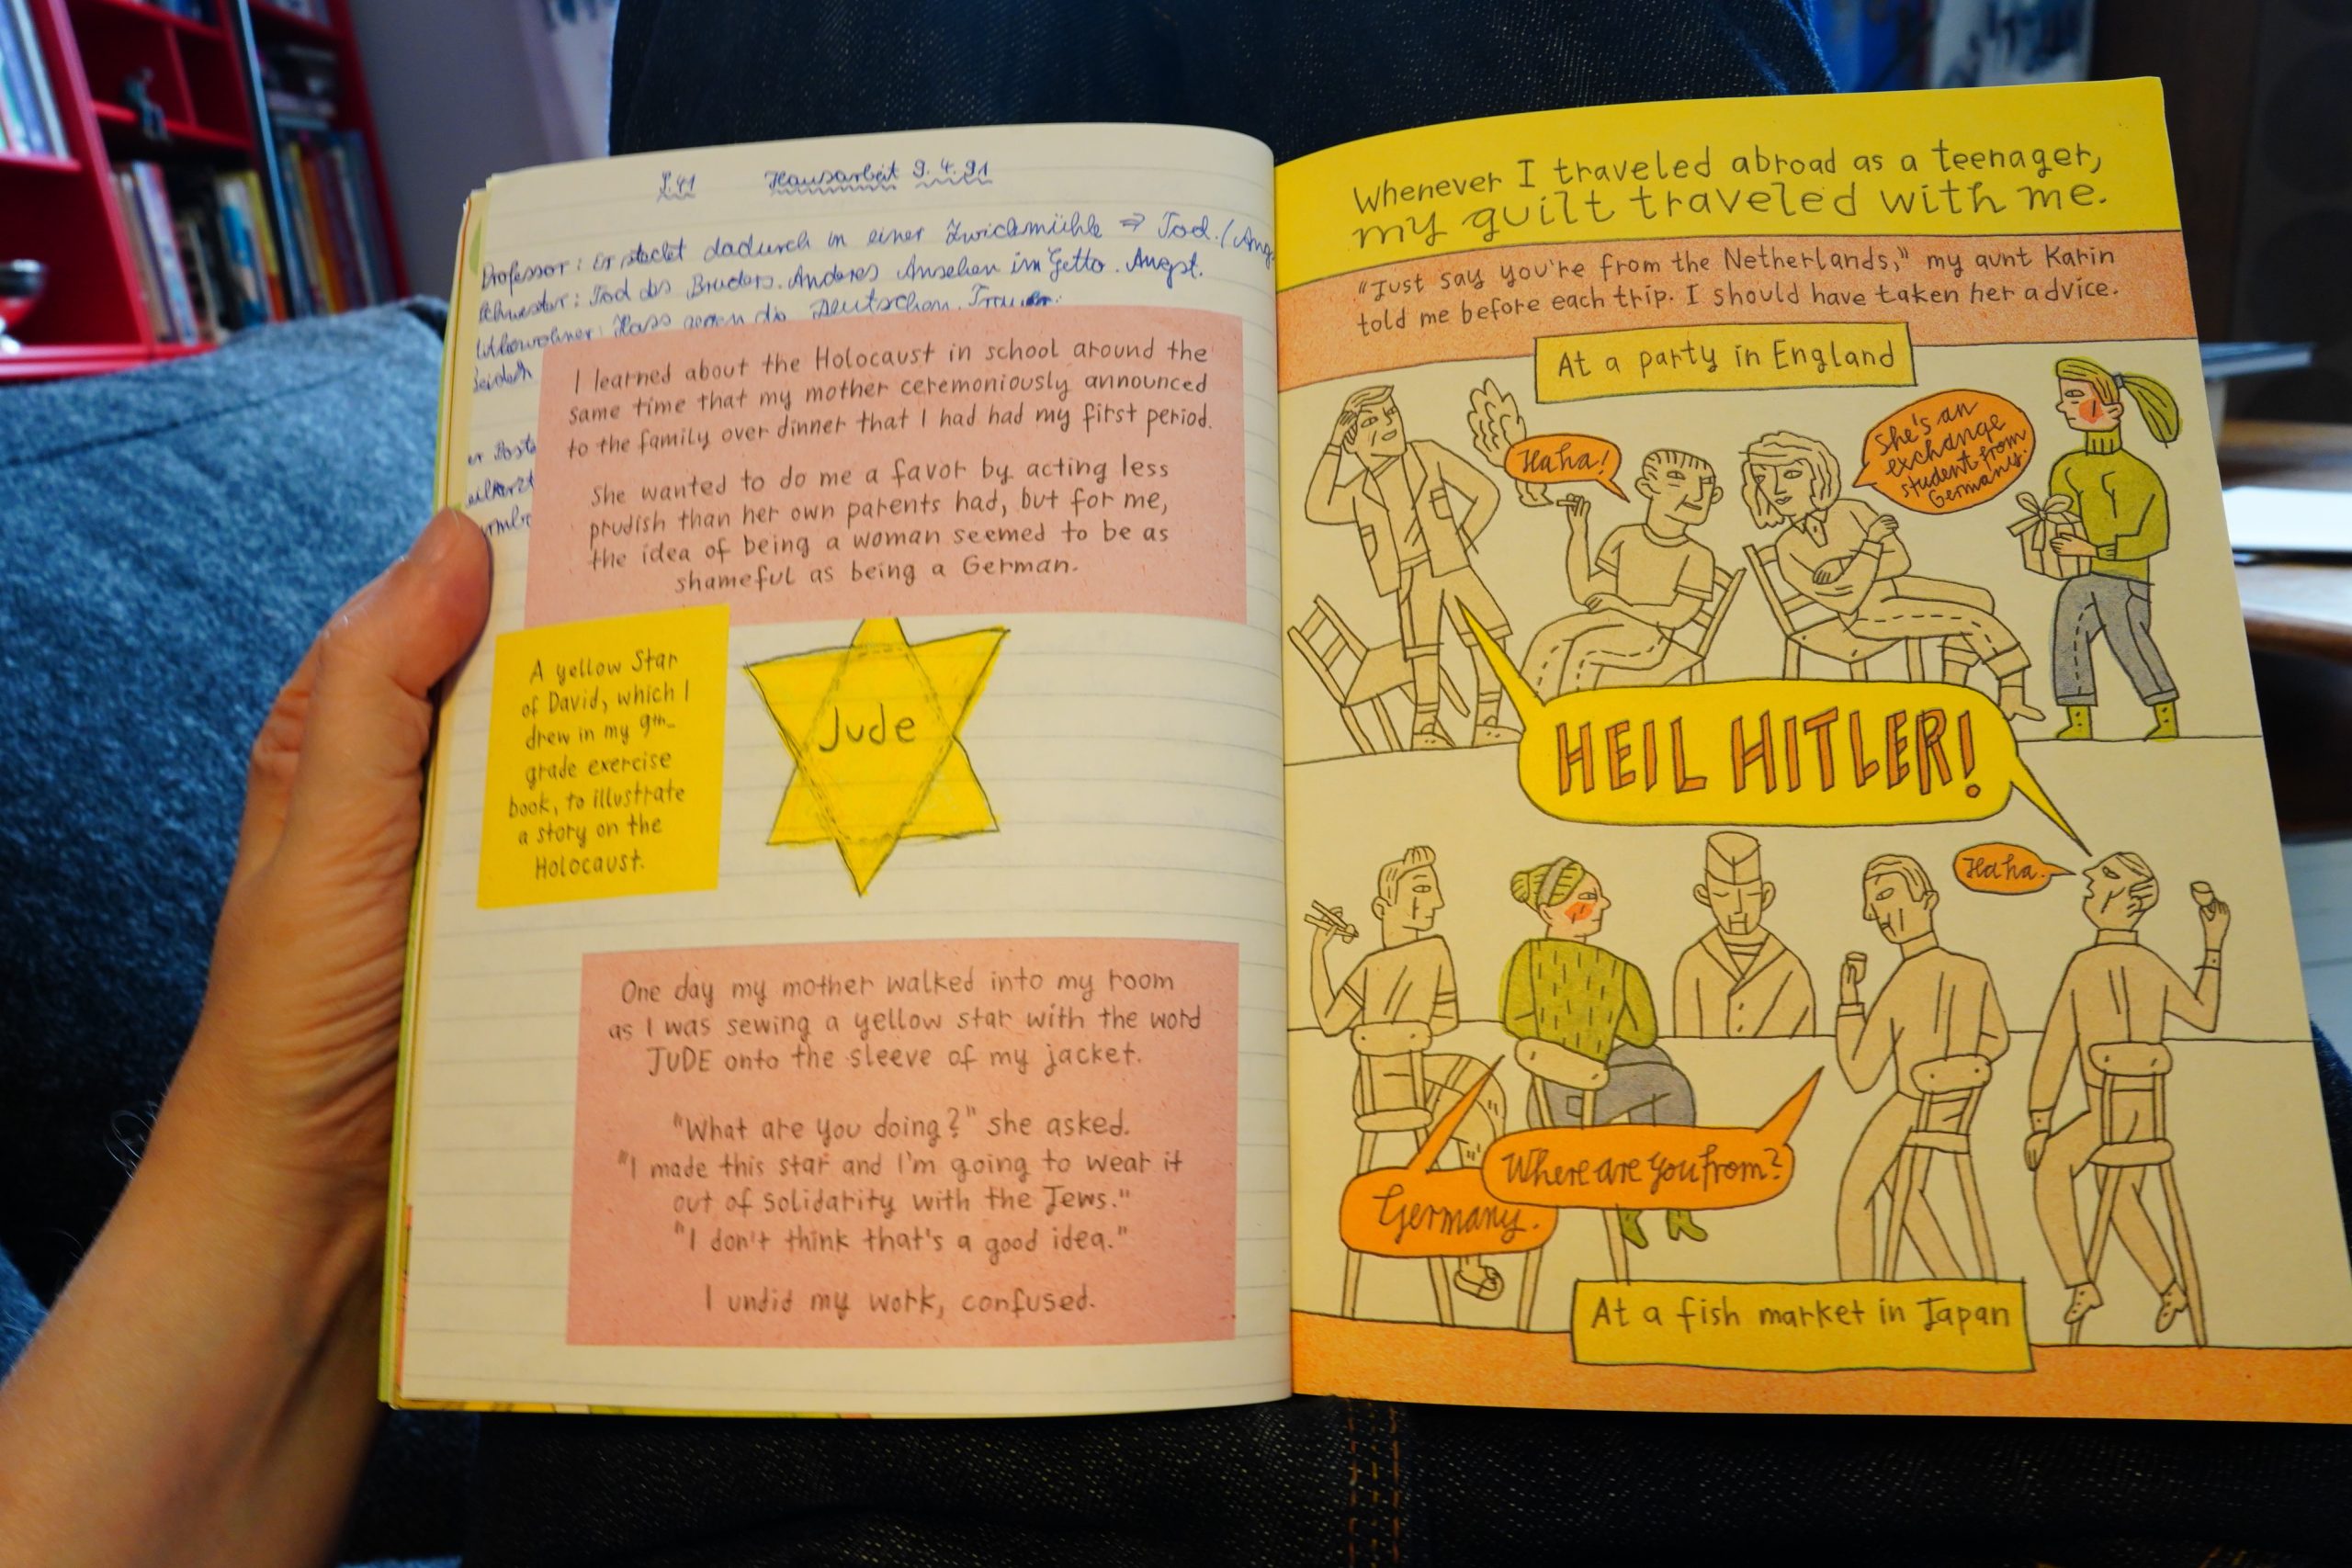 S.41 Hausarbeit 9.4.91
Professor: Er steckt dadurch in einer Zwickmühle ⇒ Tod. (Ang
Schwester: Tod des Bruders. Anderes Ansehen im Getto. Angst.
Hass gegen die Deutschen. Trauer.
I learned about the Holocaust in school around the
same time that my mother ceremoniously announced
to the family over dinner that I had had my first period.
She wanted to do me a favor by acting less
prudish than her own parents had, but for me,
the idea of being a woman seemed to be as
shameful as being a German.
A yellow Star
of David, which I
drew in my 9th-
grade exercise
book, to illustrate
a story on the
Holocaust.
Jude
One day my mother walked into my room
as I was sewing a yellow star with the word
JUDE onto the sleeve of my jacket.
"What are you doing?" she asked.
"I made this star and I'm going to wear it
out of solidarity with the Jews."
"I don't think that's a good idea."
I undid my work, confused.
Whenever I traveled abroad as a teenager,
my guilt traveled with me.
"Just say you're from the Netherlands," my aunt Karin
told me before each trip. I should have taken her advice.
At a party in England
Haha!
She's an
exchange
student from
Germany.
HEIL HITLER!
Haha.
Where are you from?
Germany.
At a fish market in Japan